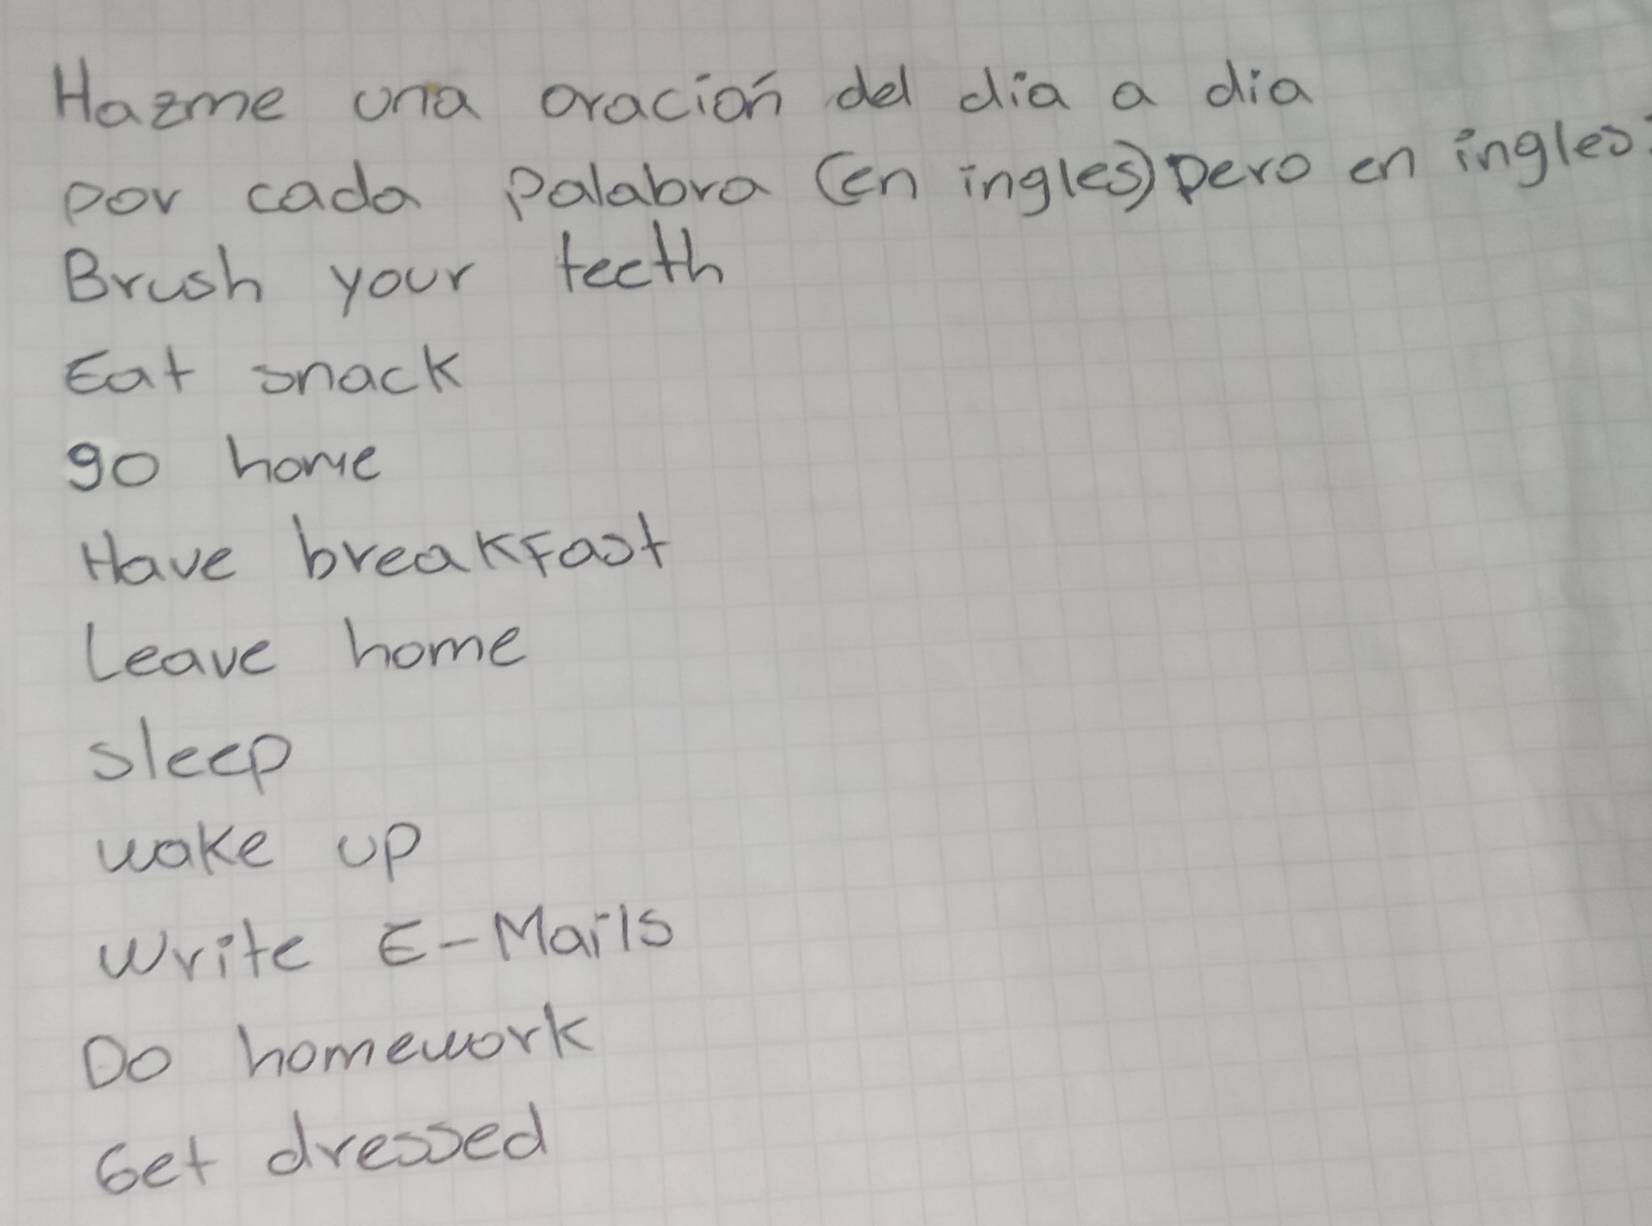 Hazme una oración del dia a dia
por cada palabra (en ingles) pero en ingles:
Brush your teeth
Eat snack
go home
Have breakFast
Leave home
sleep
wake up
Write E-Mails
Do homework
Get dressed